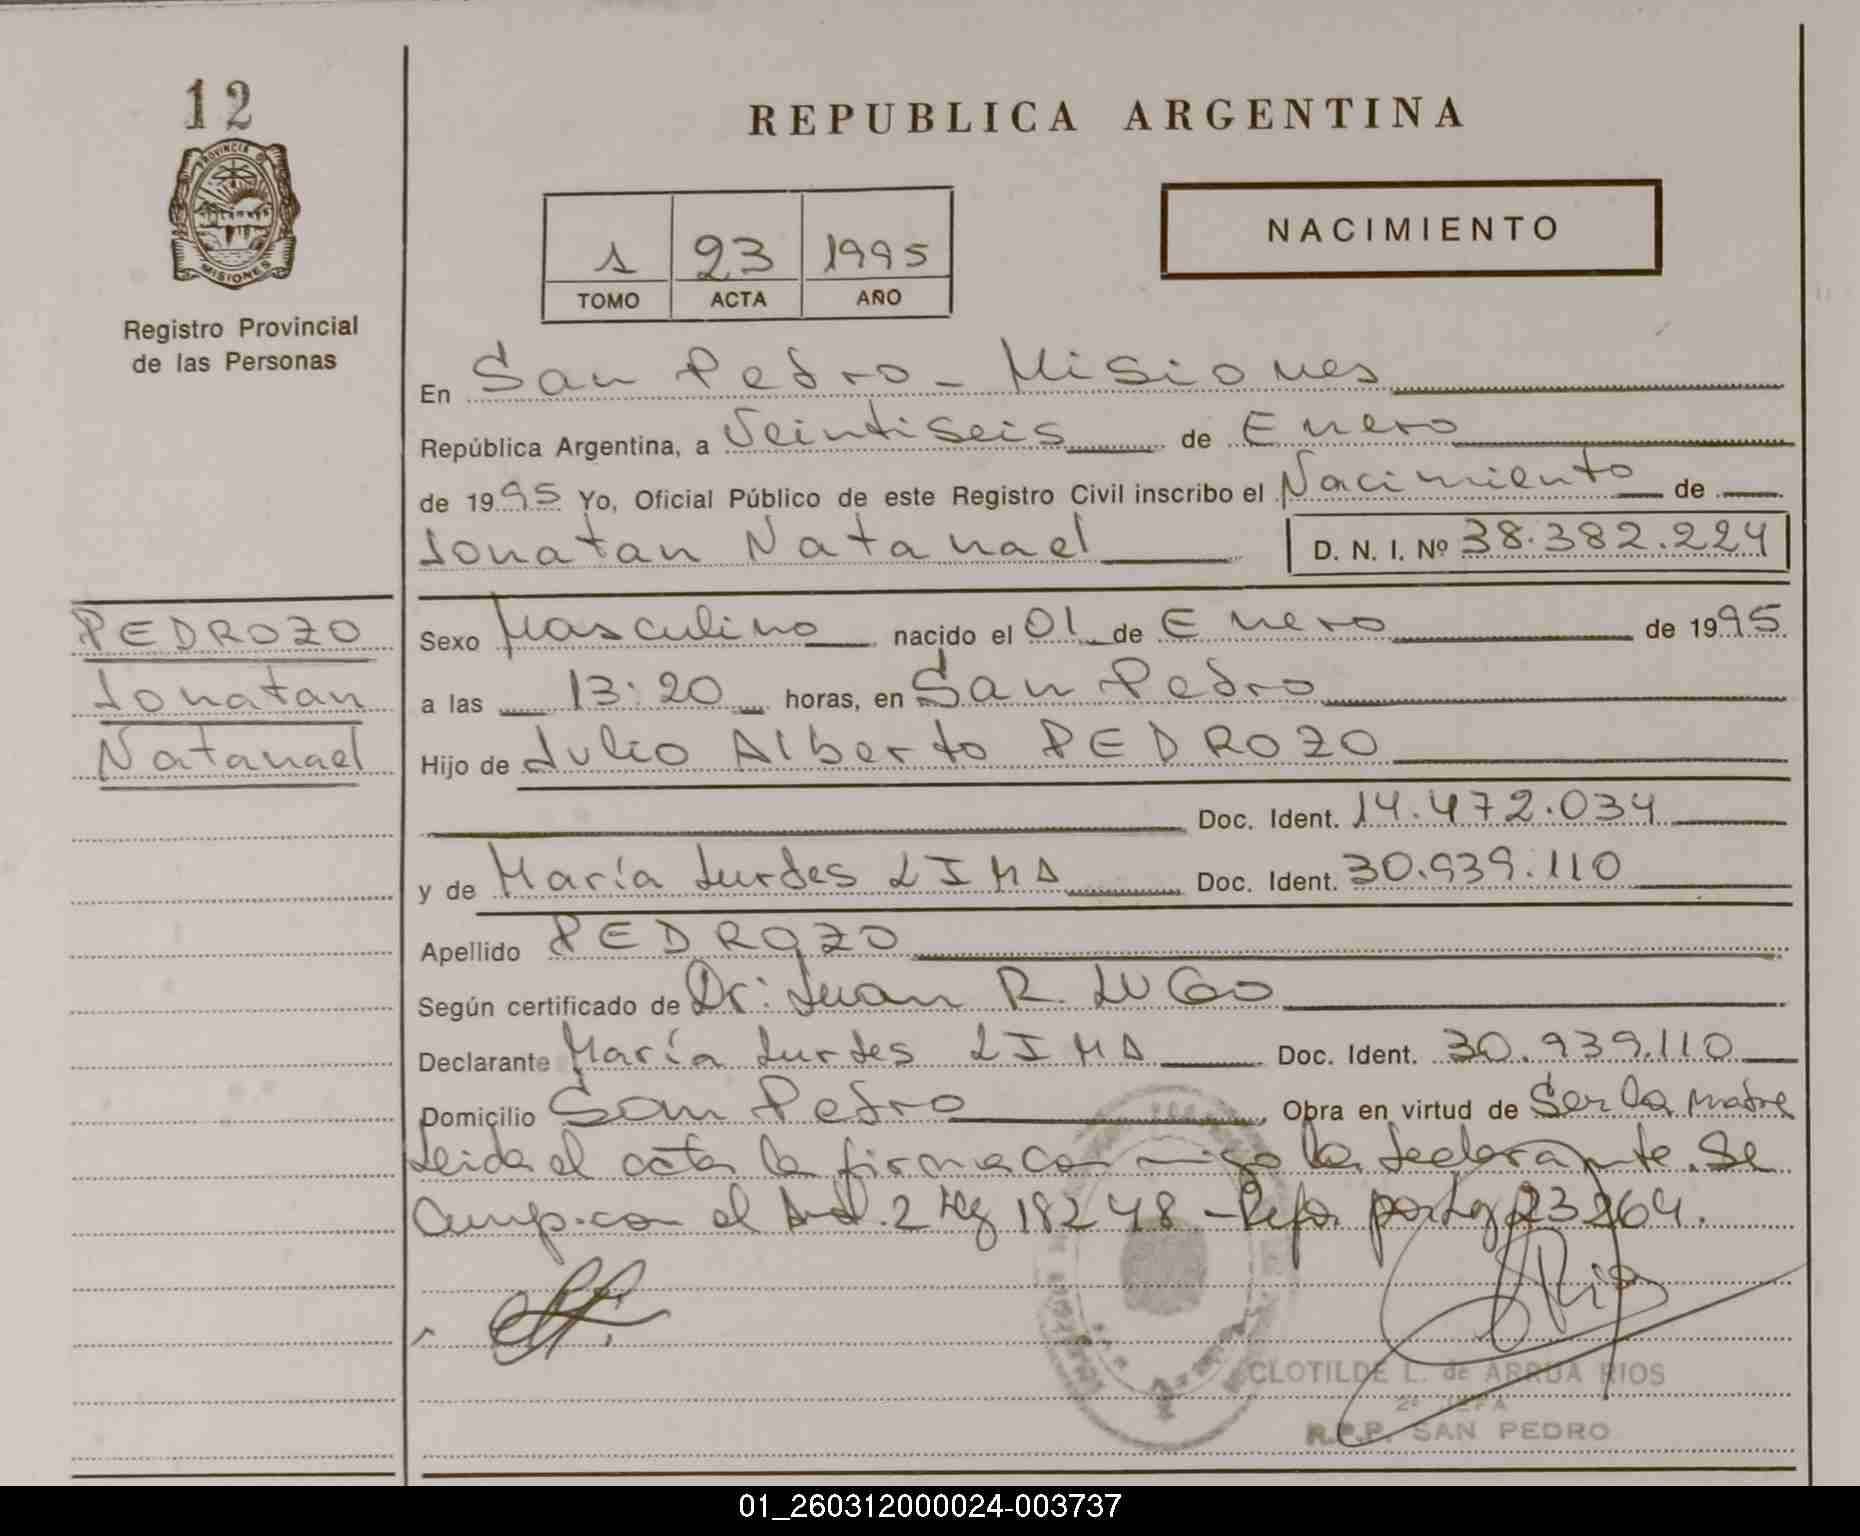 12
PROVINCIA D
MISIONES
Registro Provincial
de las Personas
REPUBLICA ARGENTINA
NACIMIENTO
1 23 1995
TOMO ACTA AÑO
En San Pedro - Misiones
República Argentina, a Veintiseis de Enero
de 1995 Yo, Oficial Público de este Registro Civil inscribo el Nacimiento de
Jonatan Natanael D. N. I. Nº 38.382.224
PEDROZO
Jonatan
Natanael
Sexo Masculino nacido el 01 de Enero de 1995
a las 13:20 horas, en San Pedro
Hijo de Julio Alberto PEDROZO
Doc. Ident. 14.472.034
y de María Lurdes LIMA Doc. Ident. 30.939.110
Apellido PEDROZO
Según certificado de Dr: Juan R. LUGO
Declarante María Lurdes LIMA Doc. Ident. 30.939.110
Domicilio San Pedro Obra en virtud de Ser la madre
Leida el acta la firma conmigo la declarante. Se
Cump. con el Art. 2 Ley 18248 - Refor por Ley 23264.
Rios
CLOTILDE L. de ARRUA RIOS
2ª JEFA
R.P.P. SAN PEDRO
01_260312000024-003737